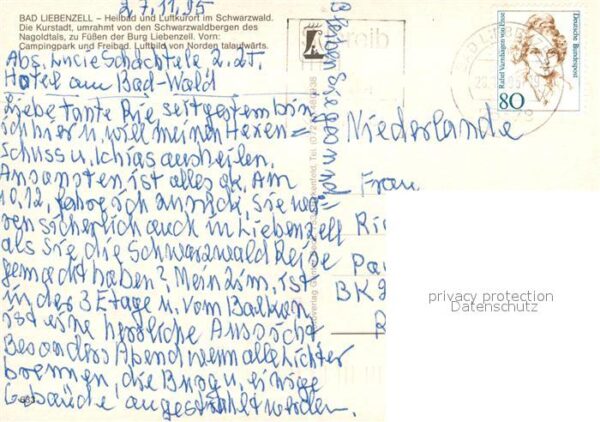 27.11.95
BAD LIEBENZELL – Heilbad und Luftkurort im Schwarzwald.
Die Kurstadt, umrahmt von den Schwarzwaldbergen des
Nagoldtals, zu Füßen der Burg Liebenzell. Vorn:
Campingpark und Freibad. Luftbild von Norden talaufwärts.
Abs. Lucie Schächtele z. Zt.
Hotel am Bad-Wald
Liebe Tante Rie, seit gestern bin
ich hier u. will meinen Hexen=
schuss u. Ichias ausheilen.
Ansonsten ist alles ok. Am
10.12. fahre ich zurück, Sie wa
ren sicherlich auch in Liebenzell
als Sie die Schwarzwald Reise
gemacht haben? Mein Zim. ist
in der 3 Etage u. vom Balkon
ist eine herrliche Aussicht
Besonders Abend wenn alle Lichter
brennen, die Burg u. einige
Gebäude angestrahlt werden.
Bleiben Sie gesund!
Niederlande
Frau
Ri
Pa
BK2
Rahel Varnhagen von Ense
Deutsche Bundespost
80
privacy protection
Datenschutz